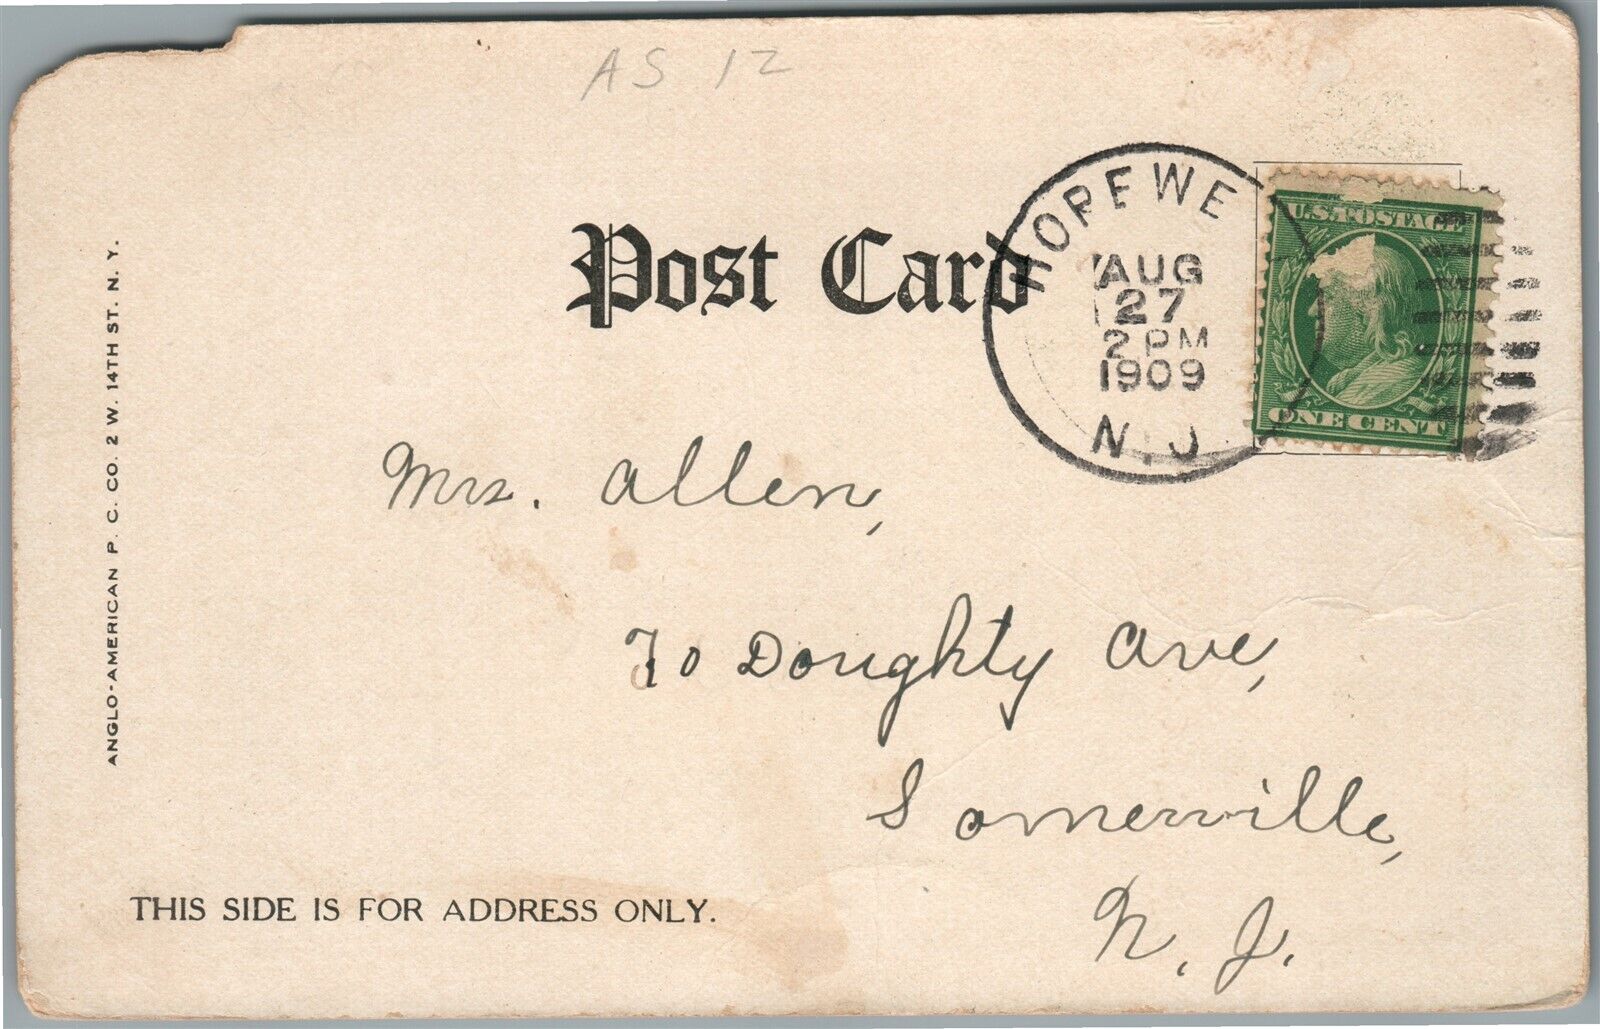 AS 12
Post Card
HOPEWE
AUG
27
2 PM
1909
N.J
U.S. POSTAGE
ONE CENT
ANGLO-AMERICAN P. C. CO. 2 W. 14TH ST. N. Y.
Mrs. Allen,
70 Doughty Ave,
Somerville,
N. J.
THIS SIDE IS FOR ADDRESS ONLY.